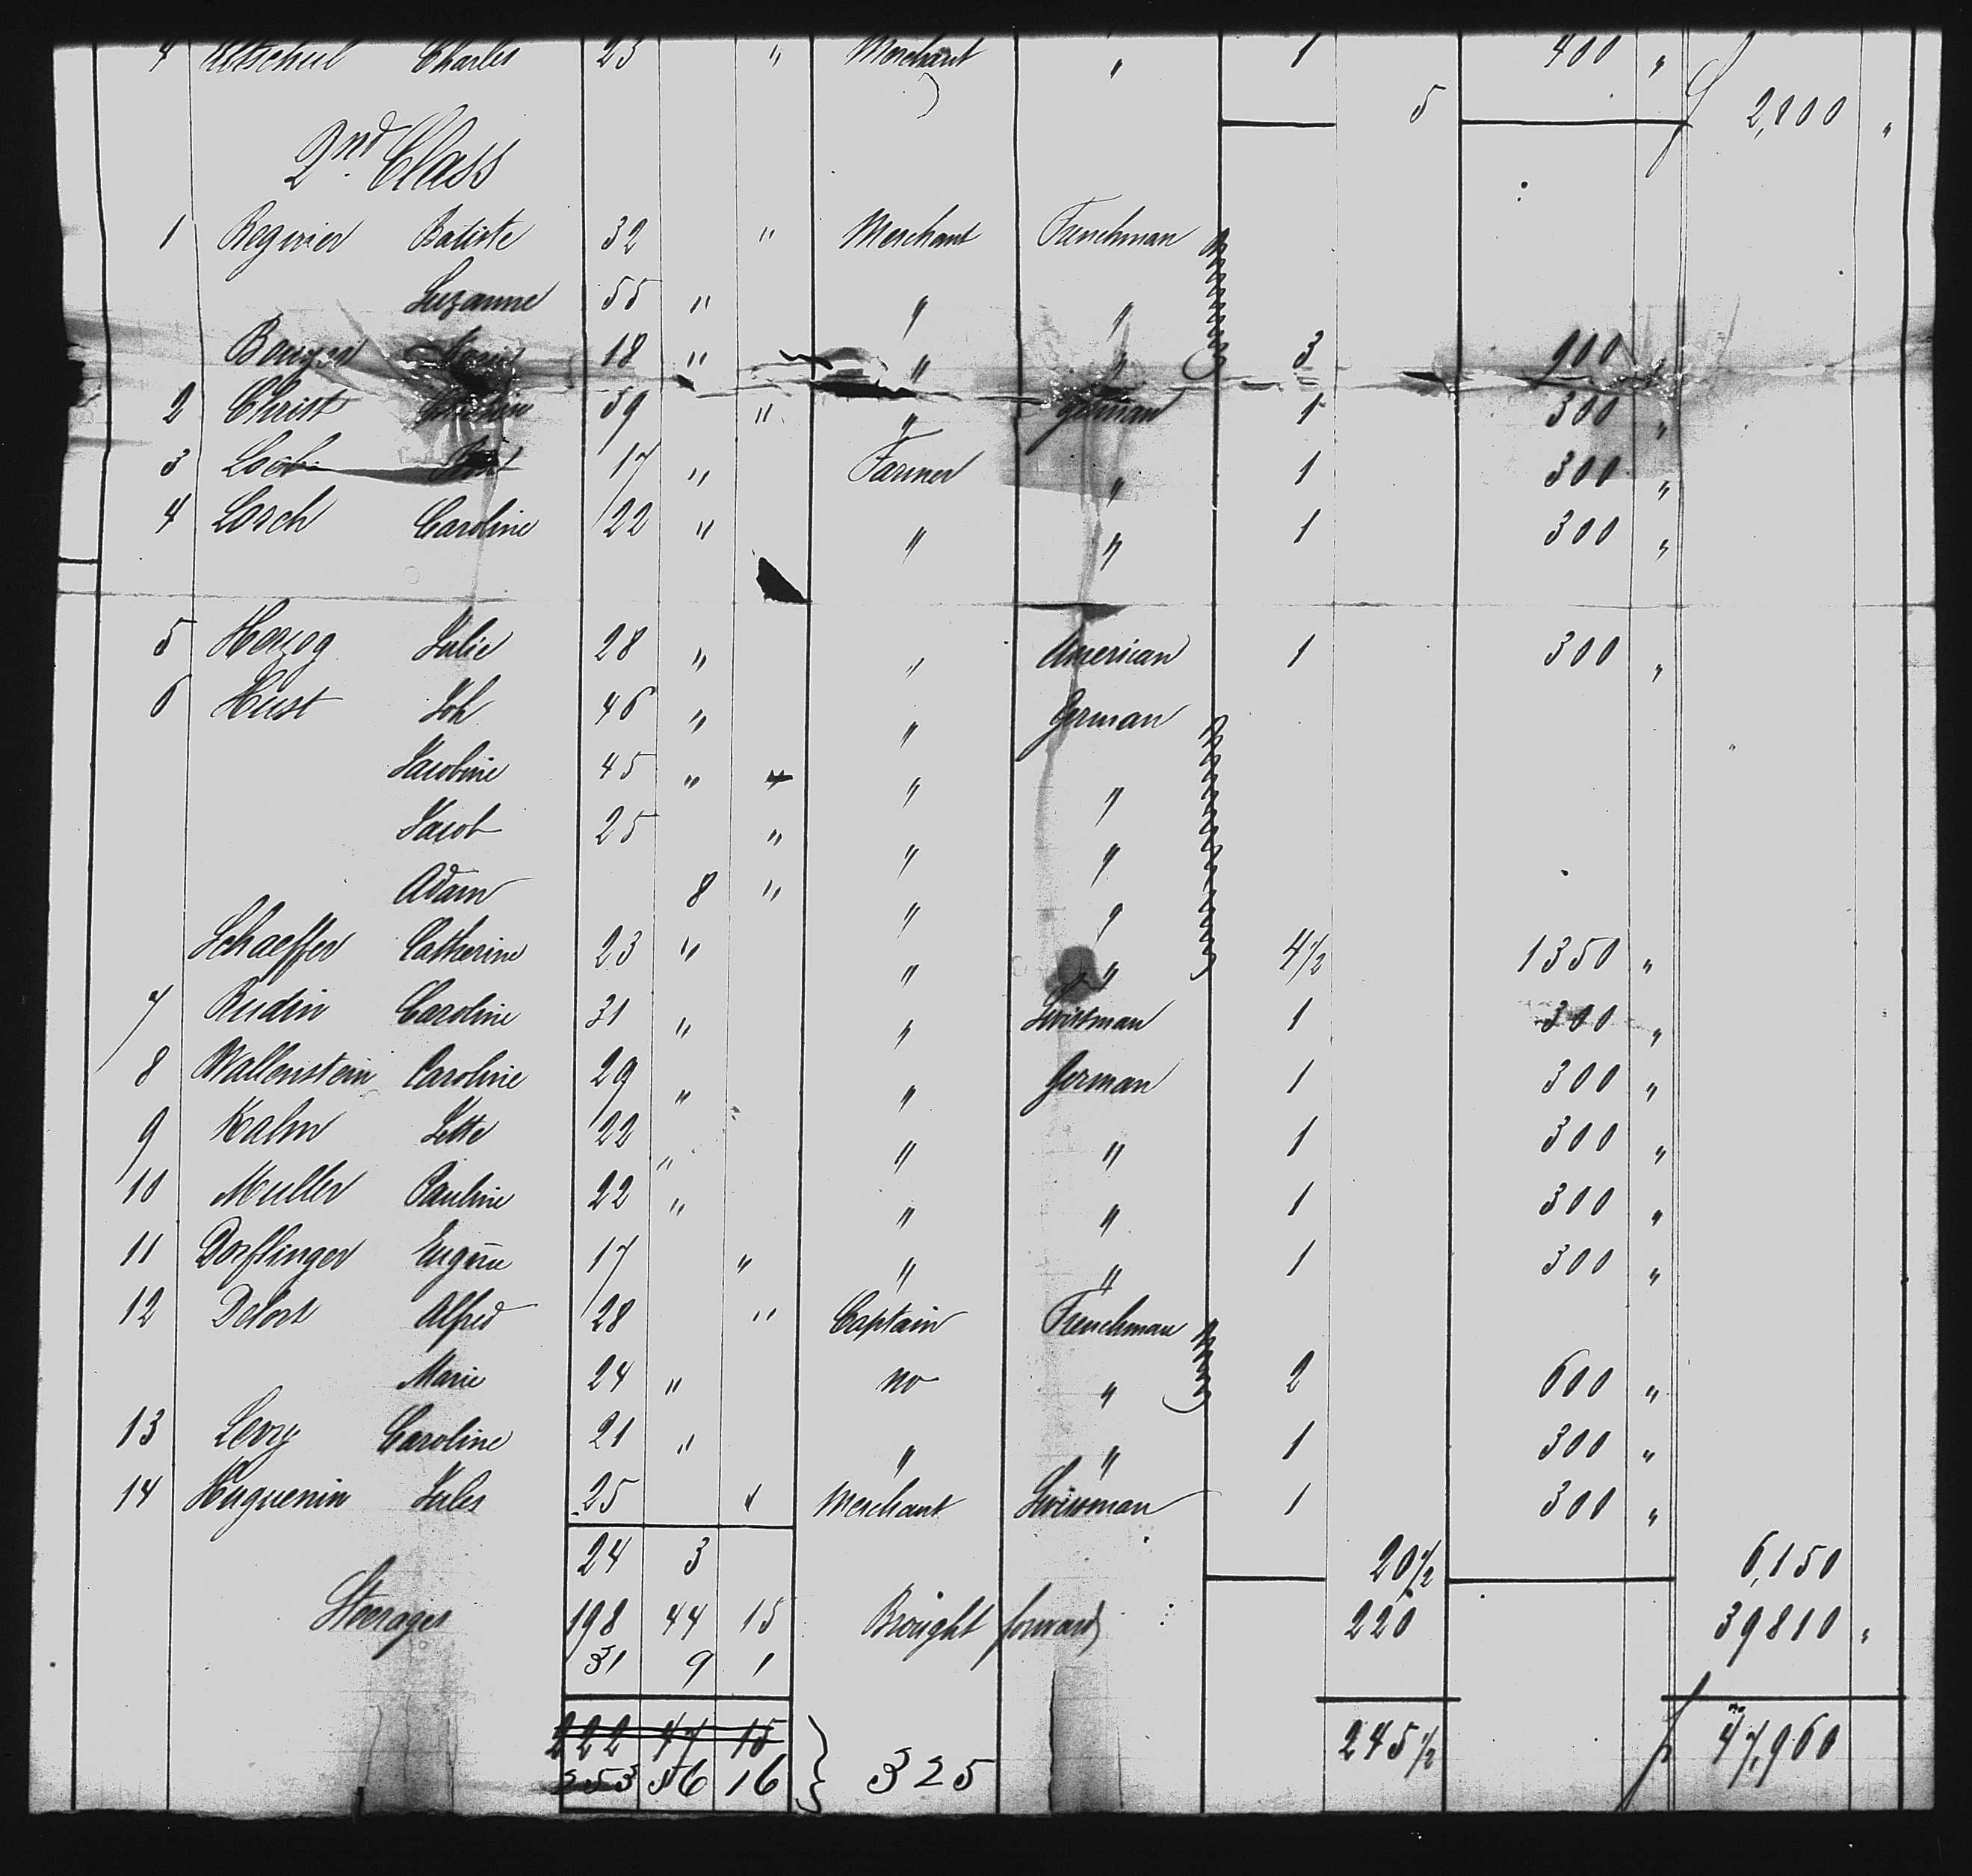 4 Altschul Charles 23 " Merchant " 1 400 "
5 2,000 "
2nd. Class
1 Regnier Batiste 32 " Merchant Frenchman
Suzanne 55 " " "
18 " " " 3 900 "
2 Christ 39 " " German 1 300 "
3 Loeb 17 " Farmer " 1 300 "
4 Losch Caroline 22 " " " 1 300 "
5 Herzog Julie 28 " " American 1 300 "
6 Hust Joh 46 " " German
Jacobine 45 " " "
Jacob 25 " " "
Adam 8 " " "
Schaeffer Catherine 23 " " " 4 1/2 1350 "
7 Rudin Caroline 31 " " Swissman 1 300 "
8 Wallenstein Caroline 29 " " German 1 300 "
9 Kahn Jette 22 " " " 1 300 "
10 Muller Pauline 22 " " " 1 300 "
11 Dorflinger Eugène 17 " " " 1 300 "
12 Delort Alfred 28 " Captain Frenchman
Marie 24 " no " 2 600 "
13 Levy Caroline 21 " " " 1 300 "
14 Huguenin Jules 25 " Merchant Swissman 1 300 "
24 3 20 1/2 6,150
Steerages 198 44 15 Brought forward 220 39810 "
31 9 1
222 47 15 245 1/2 f 47,960
253 56 16 } 325